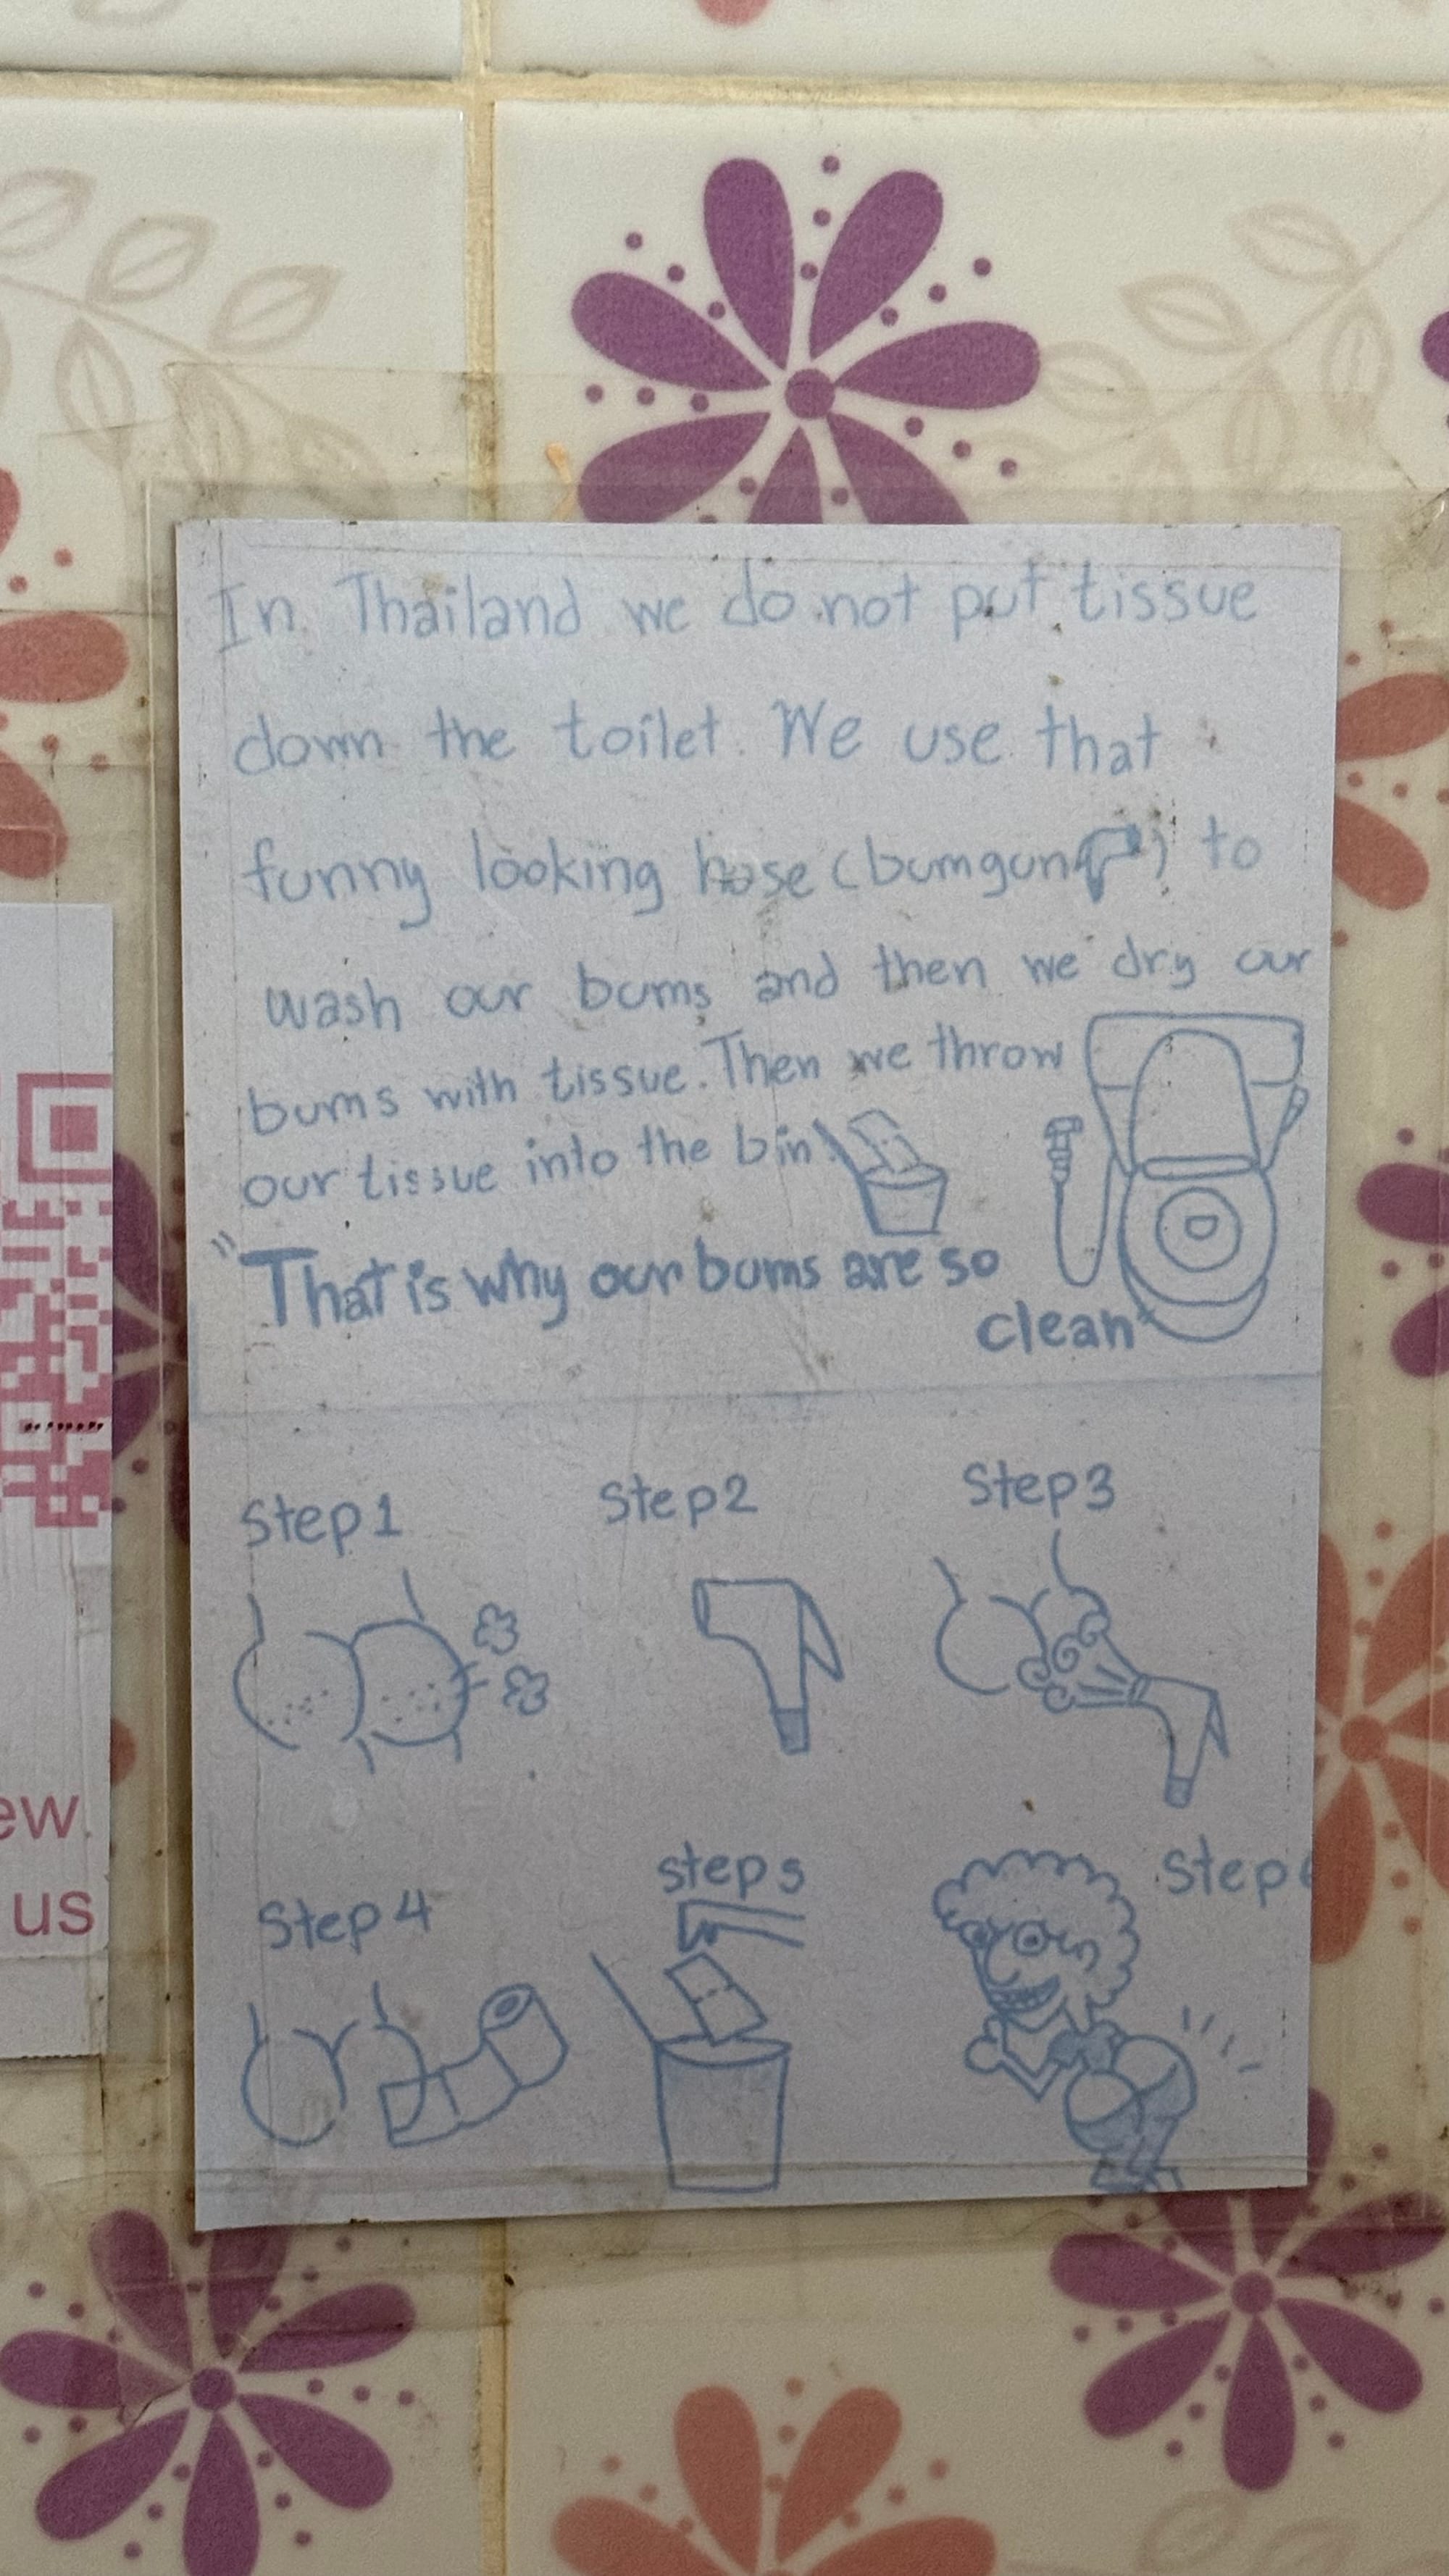 In Thailand we do not put tissue
down the toilet. We use that
funny looking hose (bumgun) to
wash our bums and then we dry our
bums with tissue. Then we throw
our tissue into the bin
"That is why our bums are so
clean"
Step 1
Step 2
Step 3
Step 4
Step 5
Step
ew
us